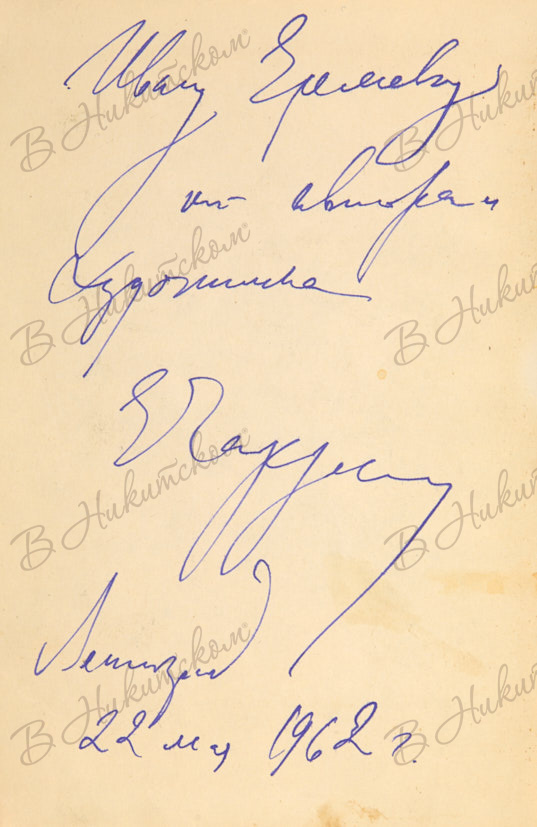 Ивану Ермаеву
от автора и
художника
Ленинград
22 мая 1962 г.
В Никитском
В Никитском
В Никитском
В Никитском
В Никитском
В Никитском
В Никитском
В Никитском